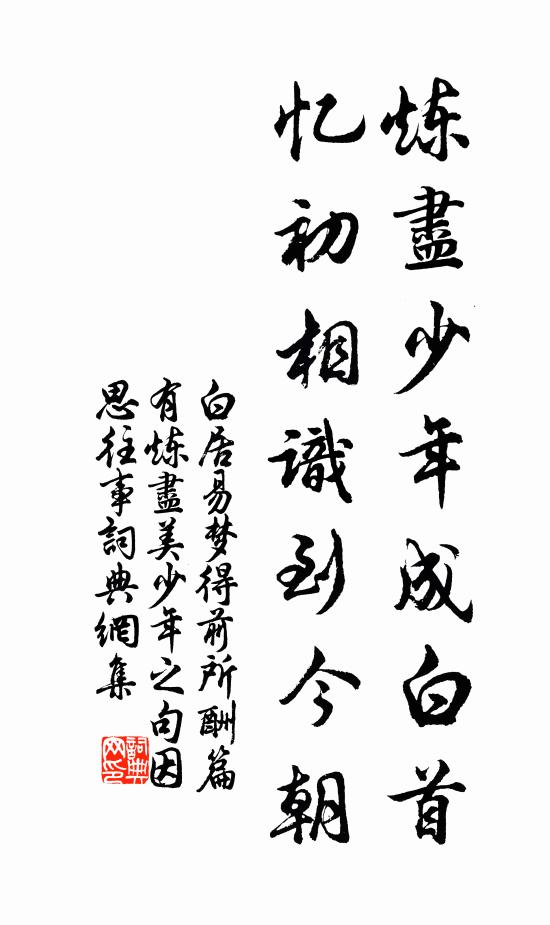 炼盡少年成白首
忆初相識到今朝
白居易梦得前所酬篇
有炼盡美少年之句因
思往事詞典網集
詞典
网印